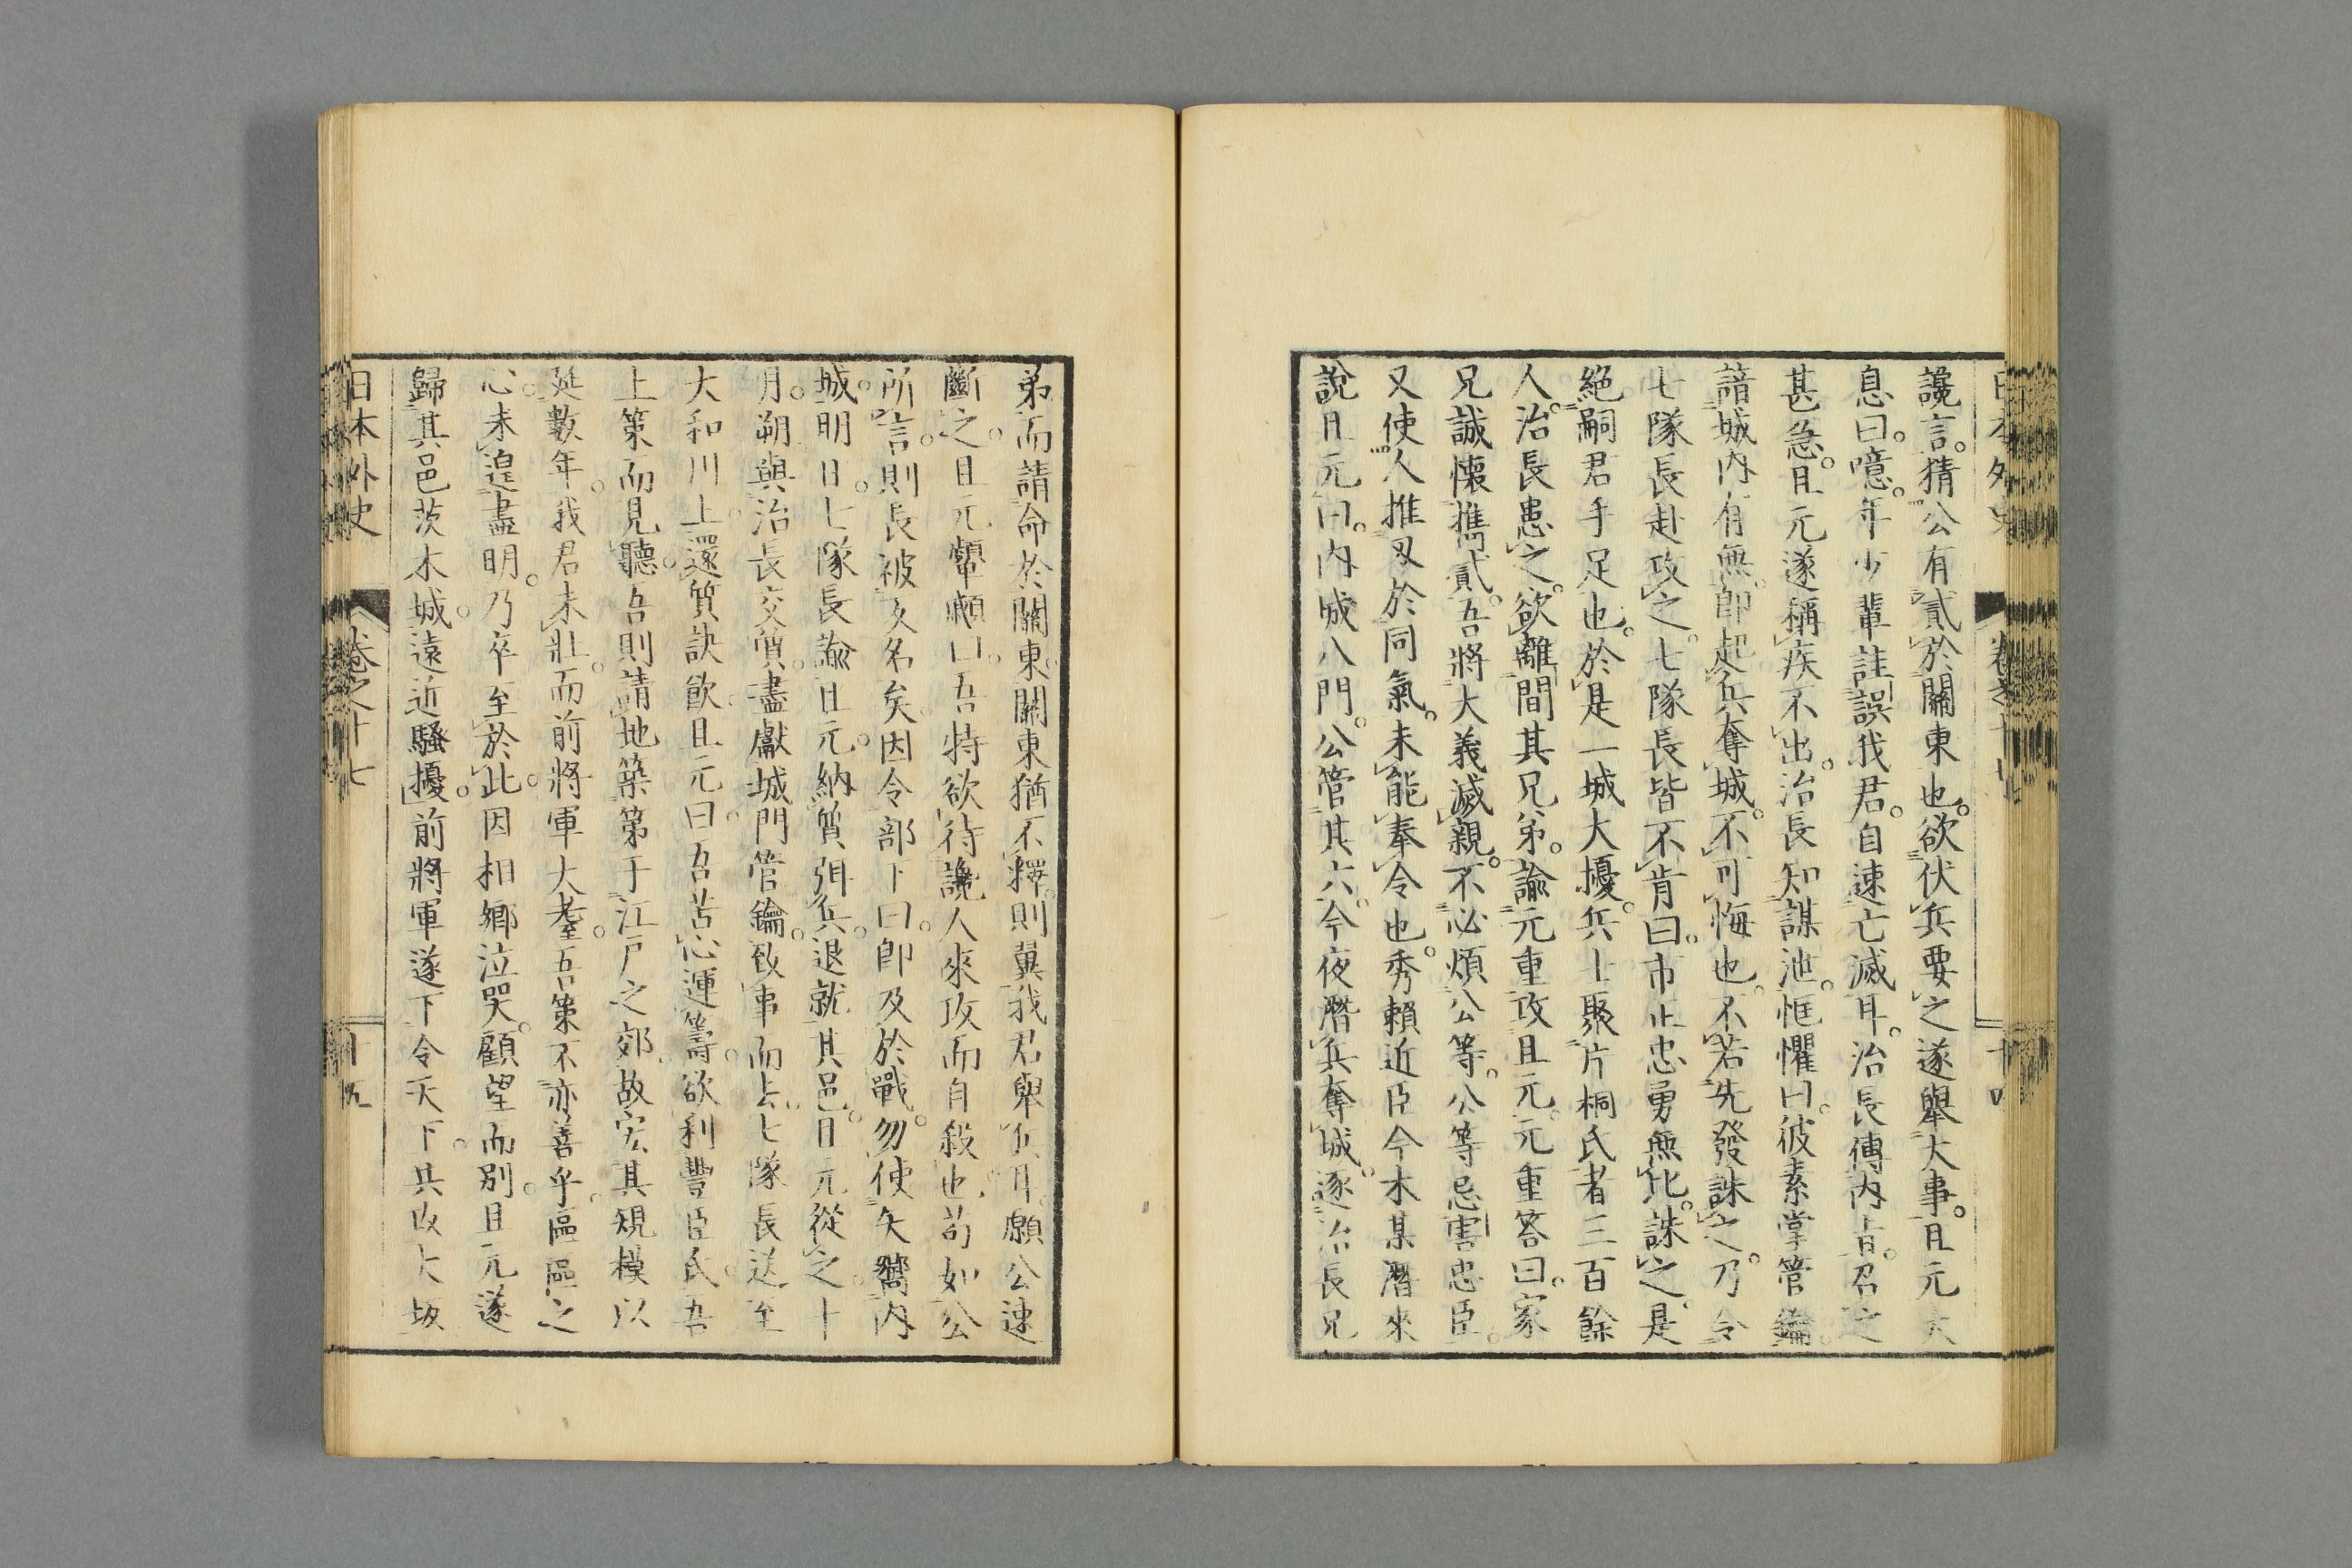 讒言。猜公有貳於關東也。欲伏兵要之遂舉大事。且元大
息曰。噫。年少輩註誤我君。自速亡滅耳。治長傳內旨。召之
甚急。且元遂稱疾不出。治長知謀泄。恇懼曰。彼素掌管鑰。
諳城內有無。卽起兵奪城。不可悔也。不若先發誅之。乃令
七隊長赴攻之。七隊長皆不肯曰。市正忠勇無比。誅之。是
絕嗣君手足也。於是一城大擾。兵士聚片桐氏者三百餘
人。治長患之。欲離間其兄弟。諭元重攻且元。元重答曰。家
兄誠懷攜貳。吾將大義滅親。不必煩公等。公等忌害忠臣。
又使人推刄於同氣。未能奉令也。秀賴近臣今木某潛來
說且元曰。內城八門。公管其六。今夜潛兵奪城。逐治長兄
日本外史 卷之十七 十四
弟而請命於關東。關東猶不釋。則翼我君舉兵耳。願公速
斷之。且元顰顣曰。吾特欲待讒人來攻而自殺也。苟如公
所言。則長被反名矣。因令部下曰。卽及於戰。勿使矢嚮內
城。明日。七隊長諭且元。納質弭兵。退就其邑。且元從之。十
月。朔。與治長交質。盡獻城門管鑰。致事而去。七隊長送至
大和川上。還質訣飮。且元曰。吾苦心運籌。欲利豐臣氏。吾
上第而見聽。吾則請地築第于江戶之郊。故宏其規模以
延數年。我君未壯。而前將軍大耋。吾策不亦善乎。區區之
心。未遑盡明。乃卒至於此。因相鄉泣哭。顧望而別。且元遂
歸其邑茨木城。遠近騷擾。前將軍遂下令天下。共攻大坂
日本外史 卷之十七 十五